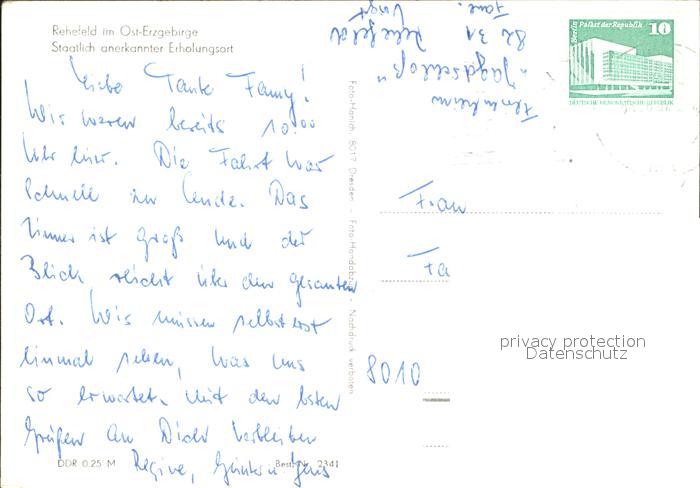 Rehefeld im Ost-Erzgebirge
Staatlich anerkannter Erholungsort
Liebe Tante Fanny!
Wir waren bereits 10.00
Uhr hier. Die Fahrt war
schnell zu Ende. Das
Zimmer ist groß und der
Blick reicht über den gesamten
Ort. Wir müssen selbst erst
einmal sehen, was uns
so erwartet. Mit den besten
Grüßen an Dich verbleiben
Regine, Günter u Jens
DDR 0,25 M Best.-Nr. 2341
Foto-Hanich, 8017 Dresden - Foto-Handabzug - Nachdruck verboten
Ferienheim
"Jagdschloß"
8231 Rehefeld
Berlin, Palast der Republik 10
DEUTSCHE DEMOKRATISCHE REPUBLIK
Frau
Fa
8010
privacy protection
Datenschutz